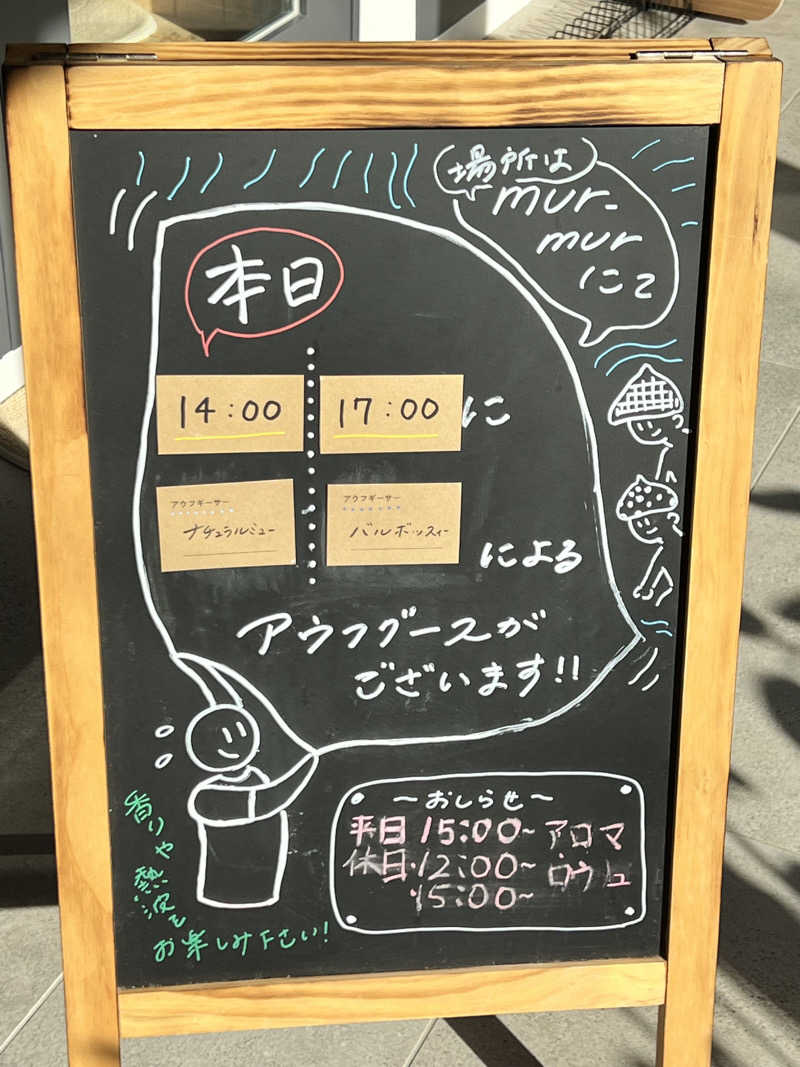 場所は
mur-
mur
にて
本日
14:00 17:00 に
アウフギーサー アウフギーサー
ナチュラルミュー バルボッスィー
による
アウフグースが
ございます!!
香りや熱波を
お楽しみ下さい!
～おしらせ～
平日 15:00~ アロマ
休日・12:00~ ロウリュ
15:00~